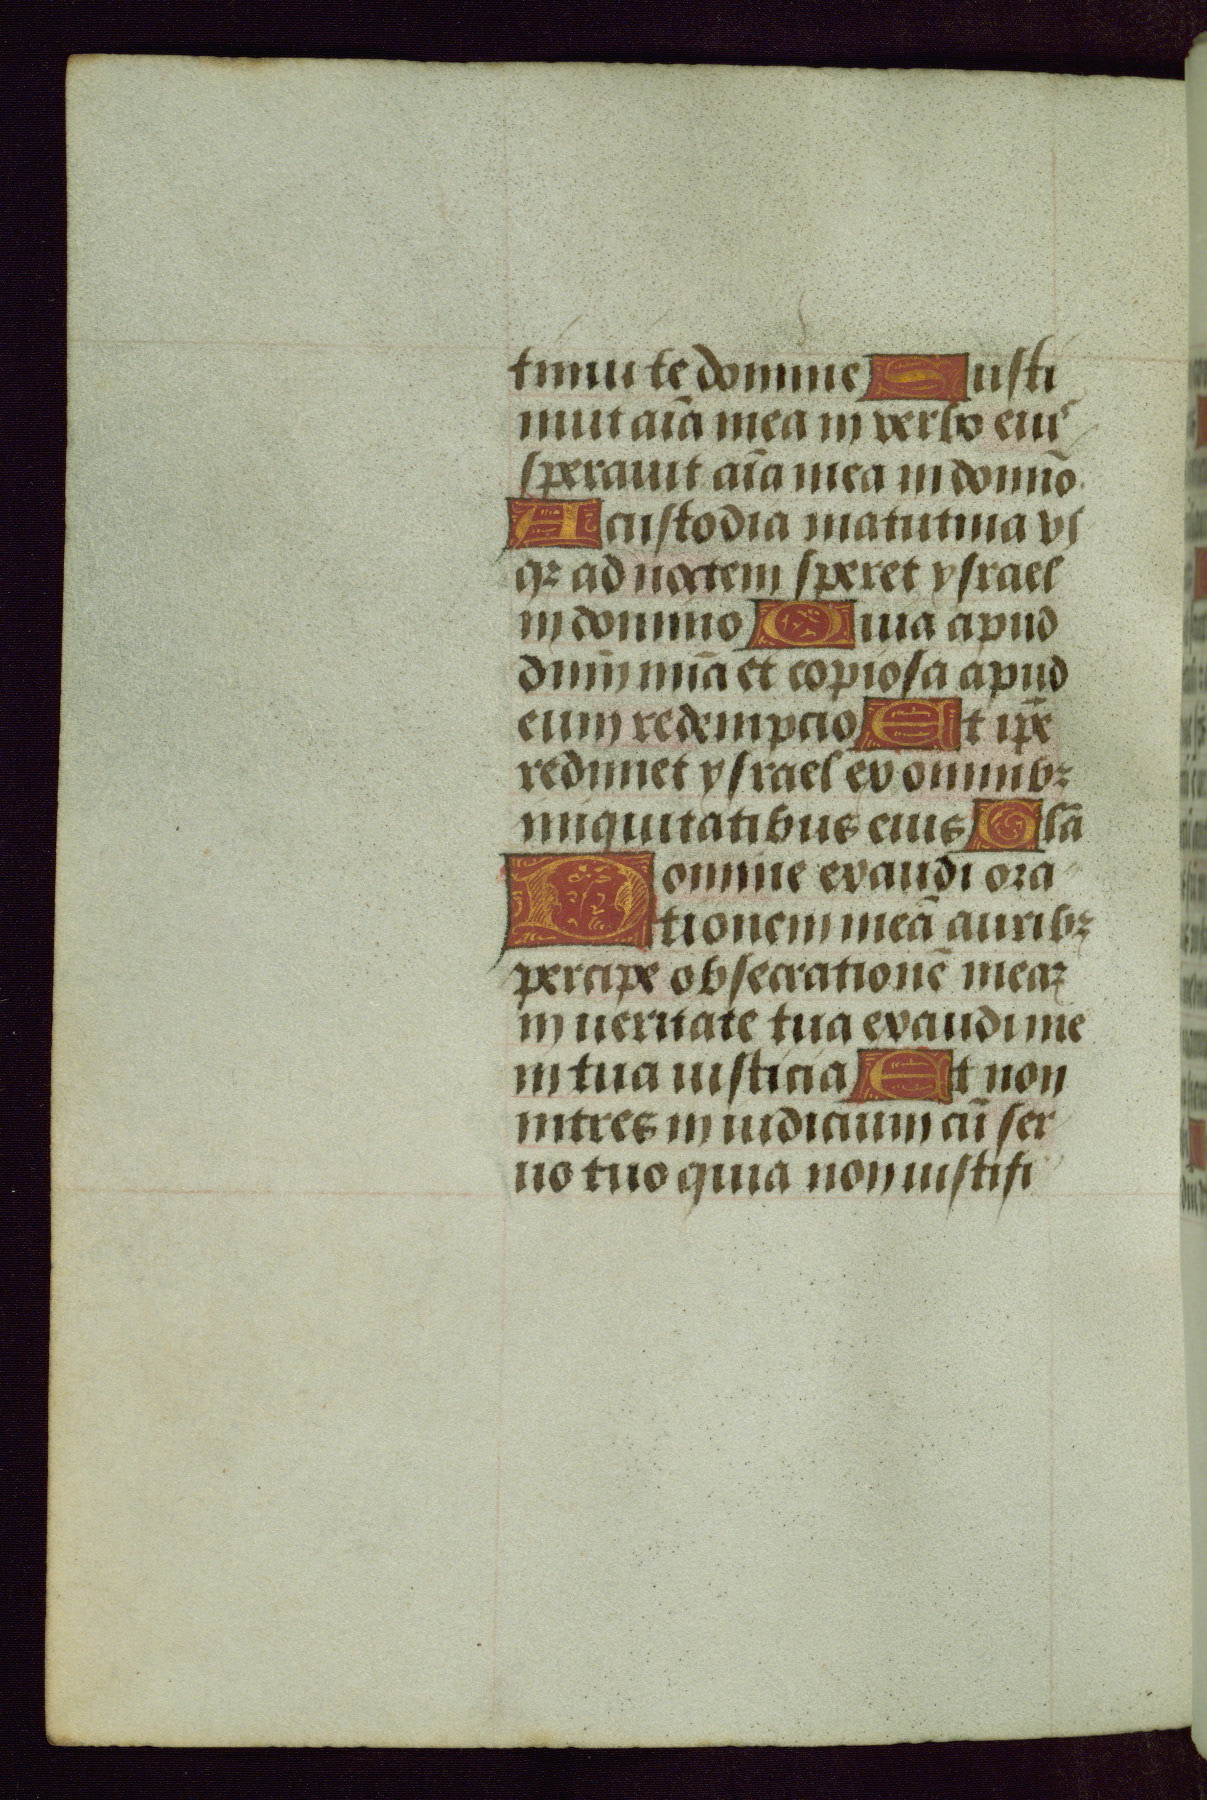 tinui te domine Susti
nuit aīa mea in verbo eius
sperauit aīa mea in domīo.
A custodia matutina vs
qꝫ ad noctem speret ysrael
in domino Quia apud
dnm̄ mīa et copiosa apud
eum redempcio Et ip̄e
redimet ysrael ex omnibꝫ
iniquitatibus eius Glā
Domine exaudi ora
tionem meā auribꝫ
percipe obsecrationē meaꝫ
in ueritate tua exaudi me
in tua iusticia Et non
intres in iudicium cū ser
uo tuo quia non iustifi